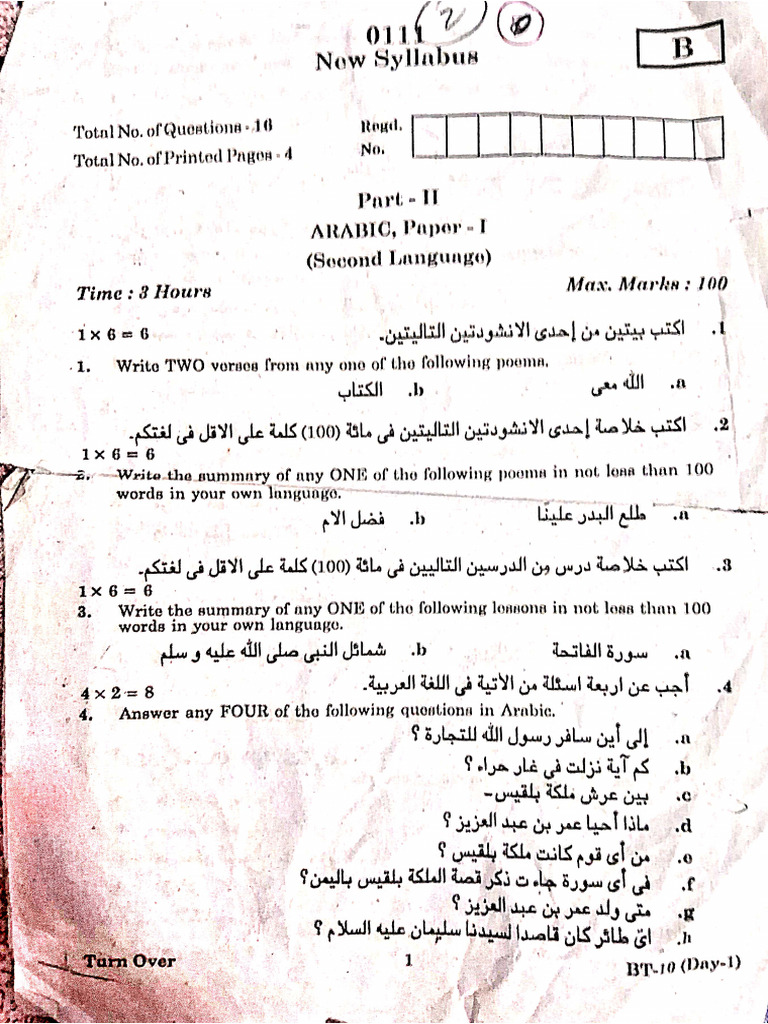 0111 (2) 0
New Syllabus
B
Total No. of Questions - 16
Total No. of Printed Pages - 4
Regd.
No.
Part - II
ARABIC, Paper - I
(Second Language)
Time : 3 Hours Max. Marks : 100
1 × 6 = 6 اكتب بيتين من إحدى الانشودتين التاليتين۔ .1
1. Write TWO verses from any one of the following poems.
a. الله معى b. الكتاب
2. اكتب خلاصة إحدى الانشودتين التاليتين فى مائة (100) كلمة على الاقل فى لغتكم۔
1 × 6 = 6
2. Write the summary of any ONE of the following poems in not less than 100
words in your own language.
a. طلع البدر علينا b. فضل الام
3. اكتب خلاصة درس من الدرسين التاليين فى مائة (100) كلمة على الاقل فى لغتكم۔
1 × 6 = 6
3. Write the summary of any ONE of the following lessons in not less than 100
words in your own language.
a. سورة الفاتحة b. شمائل النبى صلى الله عليه و سلم
4. أجب عن اربعة اسئلة من الأتية فى اللغة العربية۔
4 × 2 = 8
4. Answer any FOUR of the following questions in Arabic.
a. إلى أين سافر رسول الله للتجارة ؟
b. كم آية نزلت فى غار حراء ؟
c. بين عرش ملكة بلقيس۔
d. ماذا أحيا عمر بن عبد العزيز ؟
e. من أى قوم كانت ملكة بلقيس ؟
f. فى أى سورة جاءت ذكر قصة الملكة بلقيس باليمن؟
g. متى ولد عمر بن عبد العزيز ؟
h. اىّ طائر كان قاصدا لسيدنا سليمان عليه السلام ؟
Turn Over 1 BT-10 (Day-1)